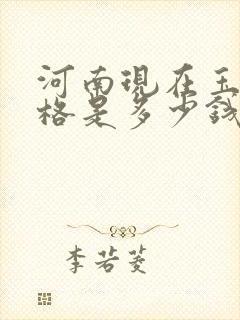 河南现在玉
格是多少钱
李若菱